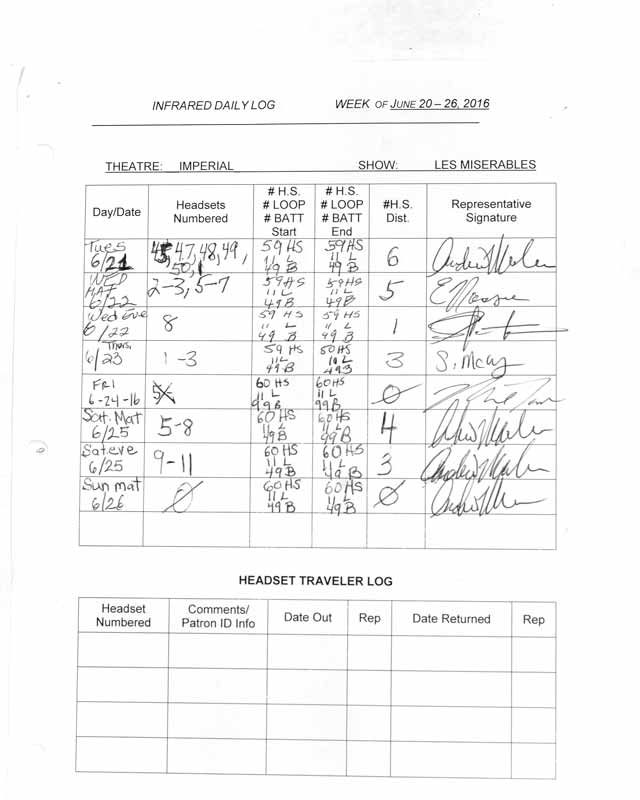 INFRARED DAILY LOG WEEK OF JUNE 20 – 26, 2016
THEATRE: IMPERIAL SHOW: LES MISERABLES
Day/Date Headsets Numbered # H.S. # LOOP # BATT Start # H.S. # LOOP # BATT End #H.S. Dist. Representative Signature
Tues 6/21 45, 47, 48, 49, 50, 1 59 HS 11 L 49 B 59HS 11 L 49 B 6
WED MAT 6/22 2-3, 5-7 59HS 11 L 49B 59HS 11 L 49 B 5
Wed eve 6/22 8 59 HS 11 L 49 B 59 HS 11 L 49 B 1
Thurs. 6/23 1-3 59 HS 11L 49B 3 S. McCay
FRI 6-24-16 60 HS 11 L 60HS 11 L 99B 0
Sat. Mat 6/25 5-8 60 HS 11 L 49B 60HS 11 L 4
Sat. eve 6/25 9-11 60 HS 11 L 49B 60 HS 11 L 49 B 3
Sun mat 6/26 0 60HS 11 L 49 B 60HS 11 L 49B 0
HEADSET TRAVELER LOG
Headset Numbered Comments/ Patron ID Info Date Out Rep Date Returned Rep